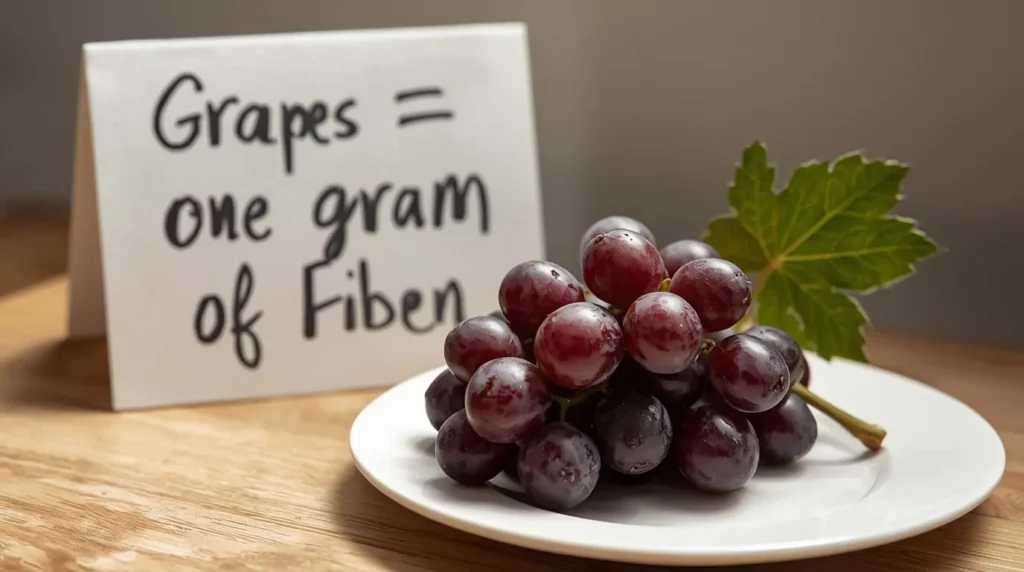 Grapes =
one gram
of Fiben